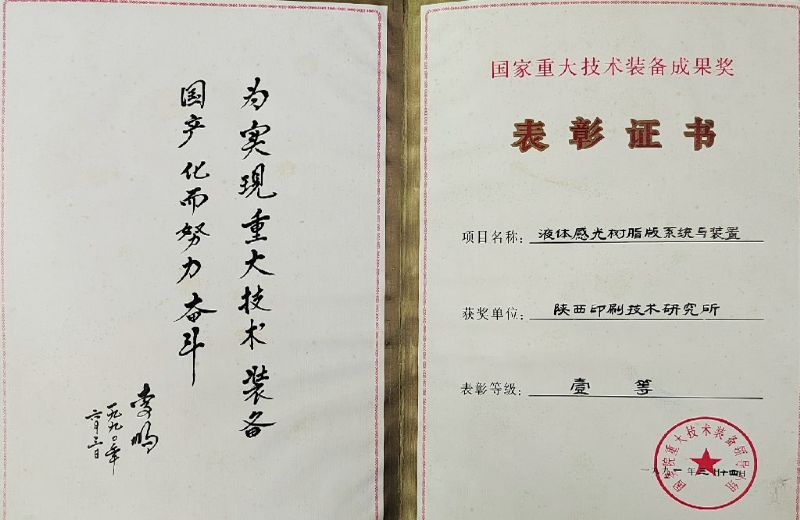 为实现重大技术装备
国产化而努力奋斗
李鹏
一九九〇年
六月三日
国家重大技术装备成果奖
表彰证书
项目名称：液体感光树脂版系统与装置
获奖单位：陕西印刷技术研究所
表彰等级：壹 等
国务院重大技术装备领导小组
一九九一年三月十四日